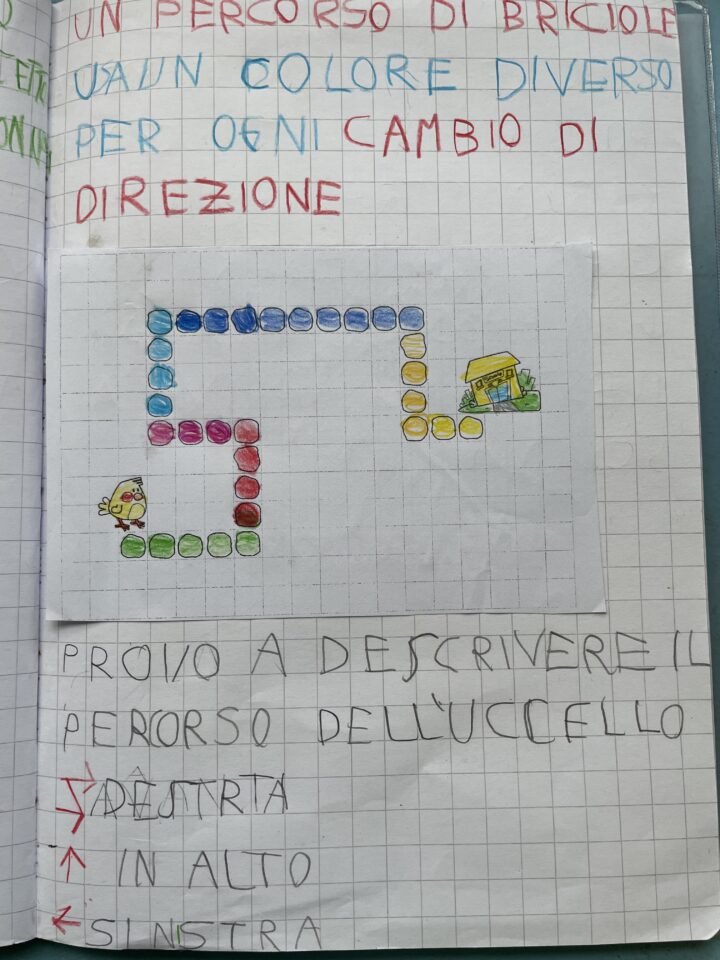 UN PERCORSO DI BRICIOLE
USA UN COLORE DIVERSO
PER OGNI CAMBIO DI
DIREZIONE
PROVO A DESCRIVERE IL
PERCORSO DELL'UCCELLO
IN ALTO
SINSTRA